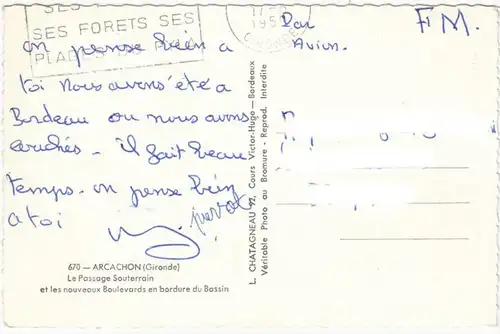 SES
SES FORETS SES
PLAGES
17-
195
GIRONDE
Par
Avion.
F M.
on pense bien a
toi nous avons été a
Bordeau ou nous avons
couchés - il fait beau
temps. on pense bien
a toi
pierrot
670 — ARCACHON (Gironde)
Le Passage Souterrain
et les nouveaux Boulevards en bordure du Bassin
L. CHATAGNEAU 92, Cours Victor-Hugo — Bordeaux
Véritable Photo au Bromure - Reprod. Interdite